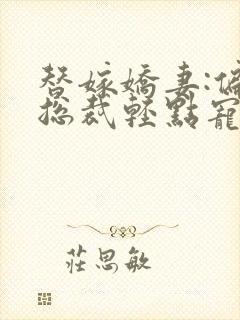 替嫁嬌妻:偏
總裁輕點寵
莊思敏